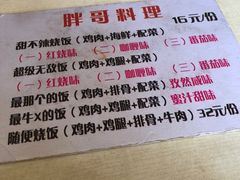 胖哥料理 16元/份
甜不辣烧饭（鸡肉+海鲜+配菜）
（一）红烧味 （二）咖喱味 （三）番茄味
超级无敌饭（鸡肉+鸡腿+配菜）
（一）红烧味 （二）咖喱味 （三）番茄味
最那个的饭（鸡肉+排骨+配菜）孜然咸味
最牛X的饭（鸡肉+鸡腿+排骨）蜜汁甜味
随便烧饭（鸡肉+鸡腿+排骨+牛肉）32元/份